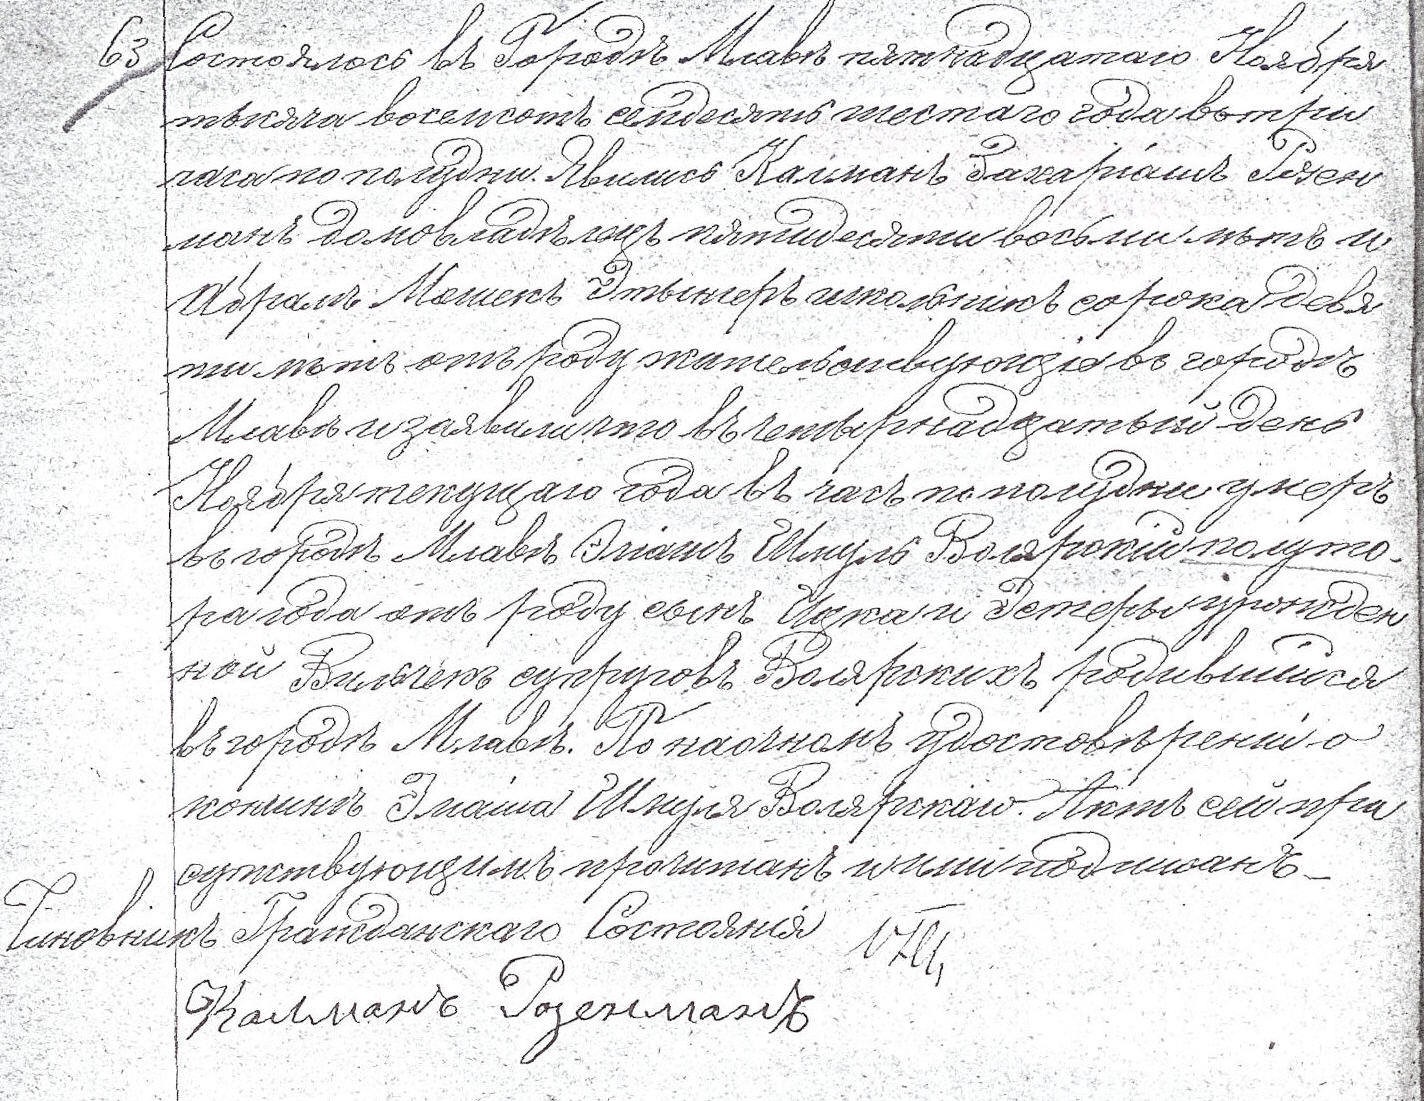 63 Состоялось въ Городѣ Млавѣ пятнадцатаго Ноября
тысяча восемсотъ семдесять шестаго года въ три
часа по полудни. Явились Калманъ Захаріашъ Розен
манъ домовладѣлецъ пятидесяти восьми лѣтъ и
Абрамъ Мошекъ Этынгеръ школьникъ сорока девя
ти лѣтъ отъ роду жительствующіе въ городѣ
Млавѣ и заявили что въ четырнадцатый день
Ноября текущаго года въ часъ по полудни умеръ
въ городѣ Млавѣ Эліашъ Шмуль Волярскій полуто-
ра года отъ роду сынъ Ицка и Эстеры урожден
ной Вильчекъ супруговъ Волярскихъ родившійся
въ городѣ Млавѣ. По наочномъ удостовѣреніи о
кончинѣ Эліаша Шмуля Волярскаго. Актъ сей при
сутствующимъ прочитанъ и ими подписанъ_
Чиновникъ Гражданскаго Состоянія
Калманъ Розенманъ